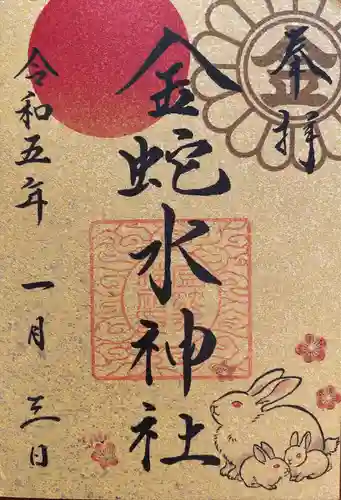 奉拝
金蛇水神社
令和五年 一月 三日